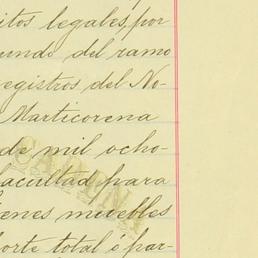 itos legales, por
undo del ramo
egistros del No-
Marticorena
de mil ocho-
facultad para
ienes muebles
porte total ó par-
CADENA